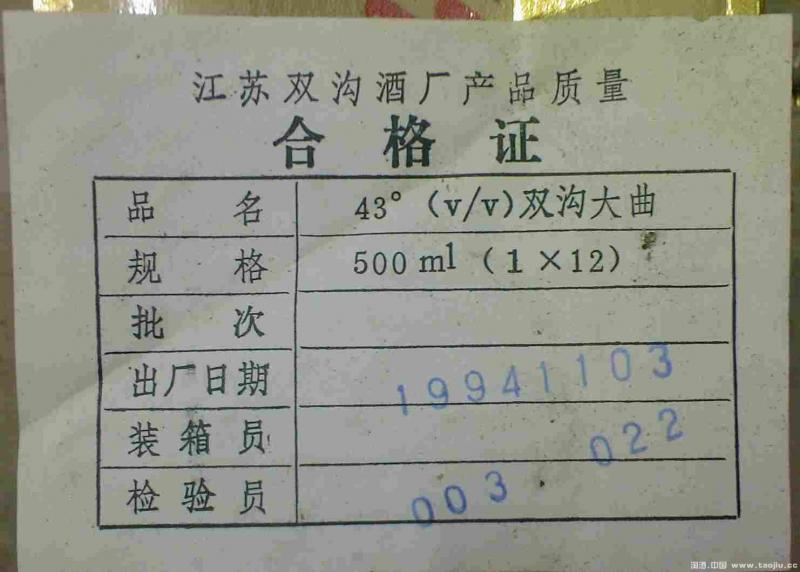 江苏双沟酒厂产品质量
合格证
品名 43° (v/v)双沟大曲
规格 500 ml (1×12)
批次
出厂日期 19941103
装箱员 022
检验员 003
淘酒.中国 www.taojiu.cc